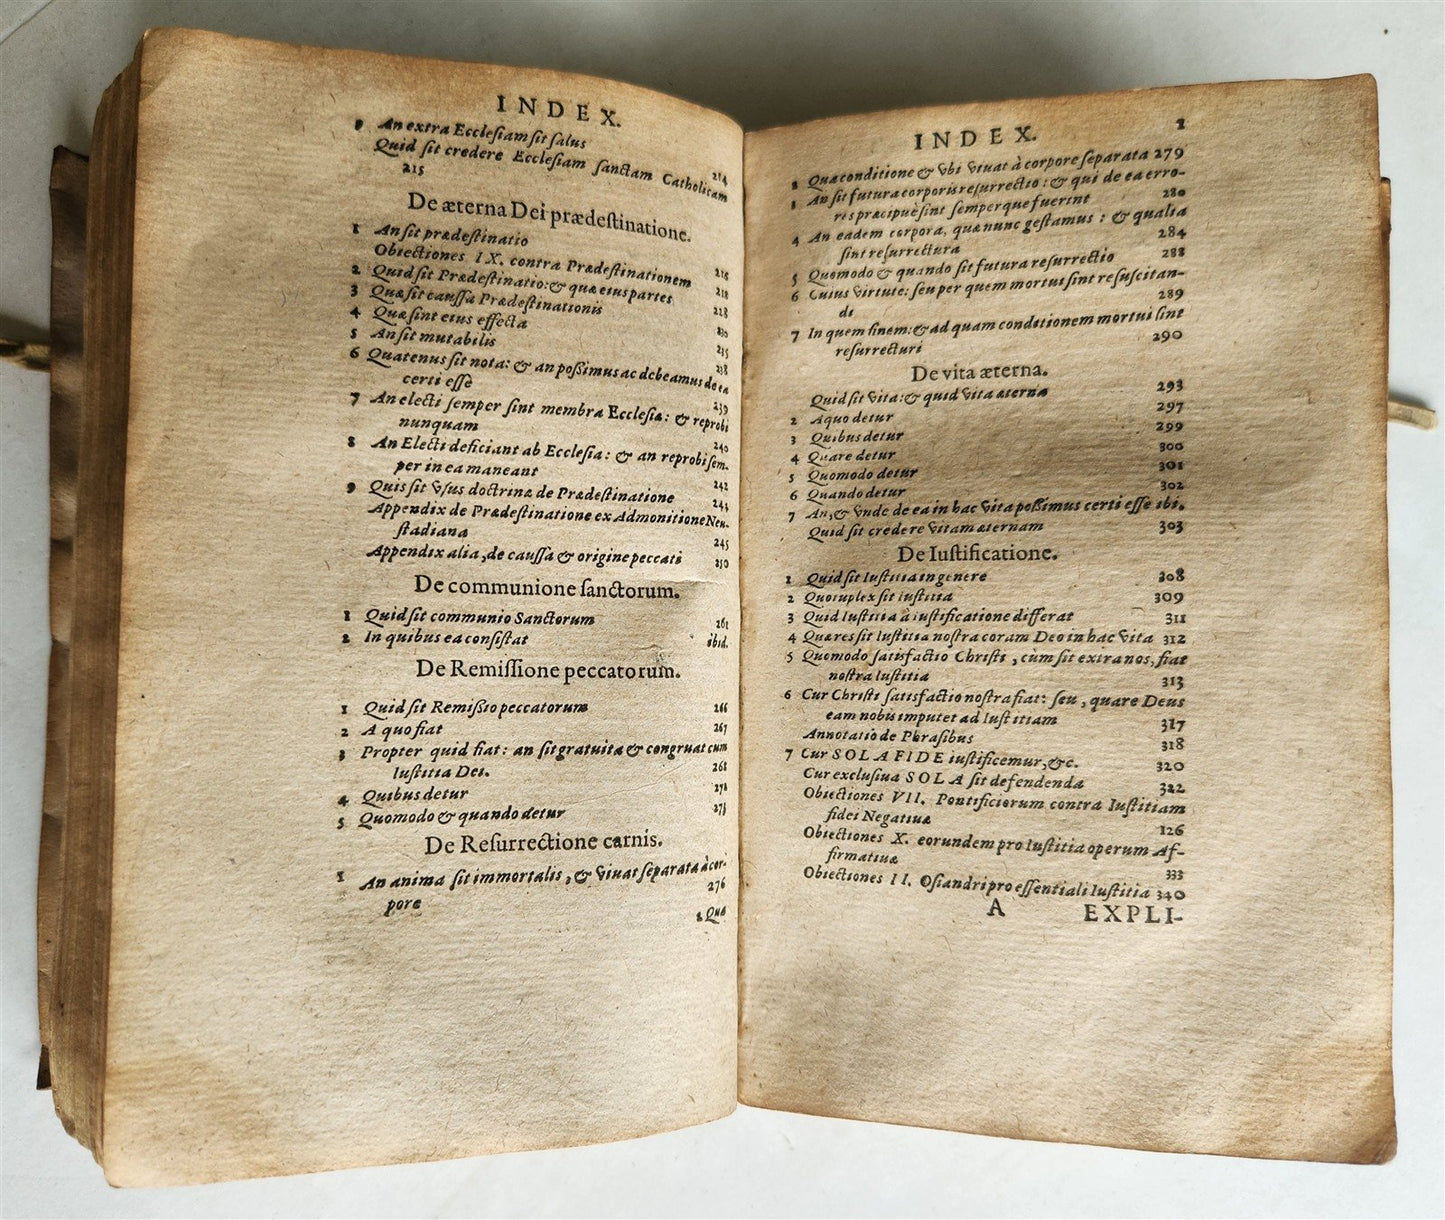 INDEX.
9 An extra Ecclesiam sit salus 214
Quid sit credere Ecclesiam sanctam Catholicam
215
De æterna Dei prædestinatione.
1 An sit prædestinatio 216
Obiectiones IX. contra Prædestinationem 218
2 Quid sit Prædestinatio: & quæ eius partes 228
3 Quæ sit caussa Prædestinationis 230
4 Quæ sint eius effecta 235
5 An sit mutabilis 238
6 Quatenus sit nota: & an poßimus ac debeamus de ea
certi esse 239
7 An electi semper sint membra Ecclesiæ: & reprobi
nunquam 240
8 An Electi deficiant ab Ecclesia: & an reprobi sem-
per in ea maneant 242
9 Quis sit vsus doctrinæ de Prædestinatione 244
Appendix de Prædestinatione ex Admonitione Neu-
stadiana 245
Appendix alia, de caussa & origine peccati 250
De communione sanctorum.
1 Quid sit communio Sanctorum 261
2 In quibus ea consistat ibid.
De Remissione peccatorum.
1 Quid sit Remißio peccatorum 266
2 A quo fiat 267
3 Propter quid fiat: an sit gratuita & congruat cum
Iustitia Dei. 268
4 Quibus detur 271
5 Quomodo & quando detur 273
De Resurrectione carnis.
1 An anima sit immortalis, & viuat separata à cor-
pore 276
2 Quæ
INDEX. 1
2 Quæ conditione & vbi viuat à corpore separata 279
3 An sit futura corporis resurrectio: & qui de ea erro-
res præcipuè sint semperque fuerint 280
4 An eadem corpora, quæ nunc gestamus: & qualia
sint resurrectura 284
5 Quomodo & quando sit futura resurrectio 288
6 Cuius virtute: seu per quem mortui sint resuscitan-
di 289
7 In quem finem: & ad quam conditionem mortui sint
resurrecturi 290
De vita æterna.
Quid sit vita: & quid vita æterna 293
2 A quo detur 297
3 Quibus detur 299
4 Quare detur 300
5 Quomodo detur 301
6 Quando detur 302
7 An, & vnde de ea in hac vita poßimus certi esse ibi.
Quid sit credere vitam æternam 303
De Iustificatione.
1 Quid sit Iustitia in genere 308
2 Quotuplex sit iustitia 309
3 Quid Iustitia à iustificatione differat 311
4 Quæ res sit Iustitia nostra coram Deo in hac vita 312
5 Quomodo satisfactio Christi, cùm sit extra nos, fiat
nostra Iustitia 313
6 Cur Christi satisfactio nostra fiat: seu, quare Deus
eam nobis imputet ad Iustitiam 317
Annotatio de Phrasibus 318
7 Cur SOLA FIDE iustificemur, &c. 320
Cur exclusiua SOLA sit defendenda 322
Obiectiones VII. Pontificiorum contra Iustitiam
fidei Negatiuæ 126
Obiectiones X. eorundem pro Iustitia operum Af-
firmatiuæ 333
Obiectiones II. Osiandri pro essentiali Iustitia 340
A EXPLI-